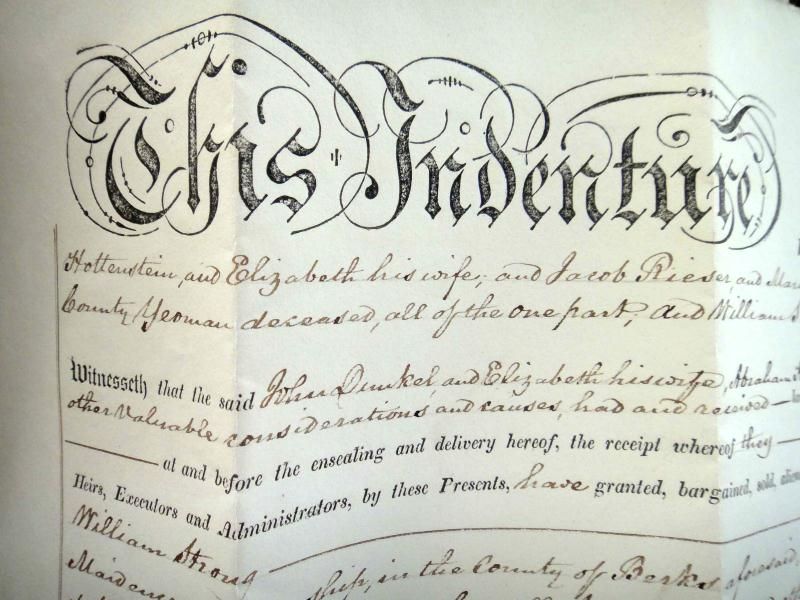 This Indenture
Hottenstein, and Elizabeth his wife; and Jacob Rieser, and
County Yeoman deceased, all of the one part; and William
Witnesseth that the said John Dunkel, and Elizabeth his wife, Abraham
other Valuable considerations and causes, had and received —
at and before the ensealing and delivery hereof, the receipt whereof they —
Heirs, Executors and Administrators, by these Presents, have granted, bargained, sold,
William Strong
ship, in the County of Berks aforesaid,